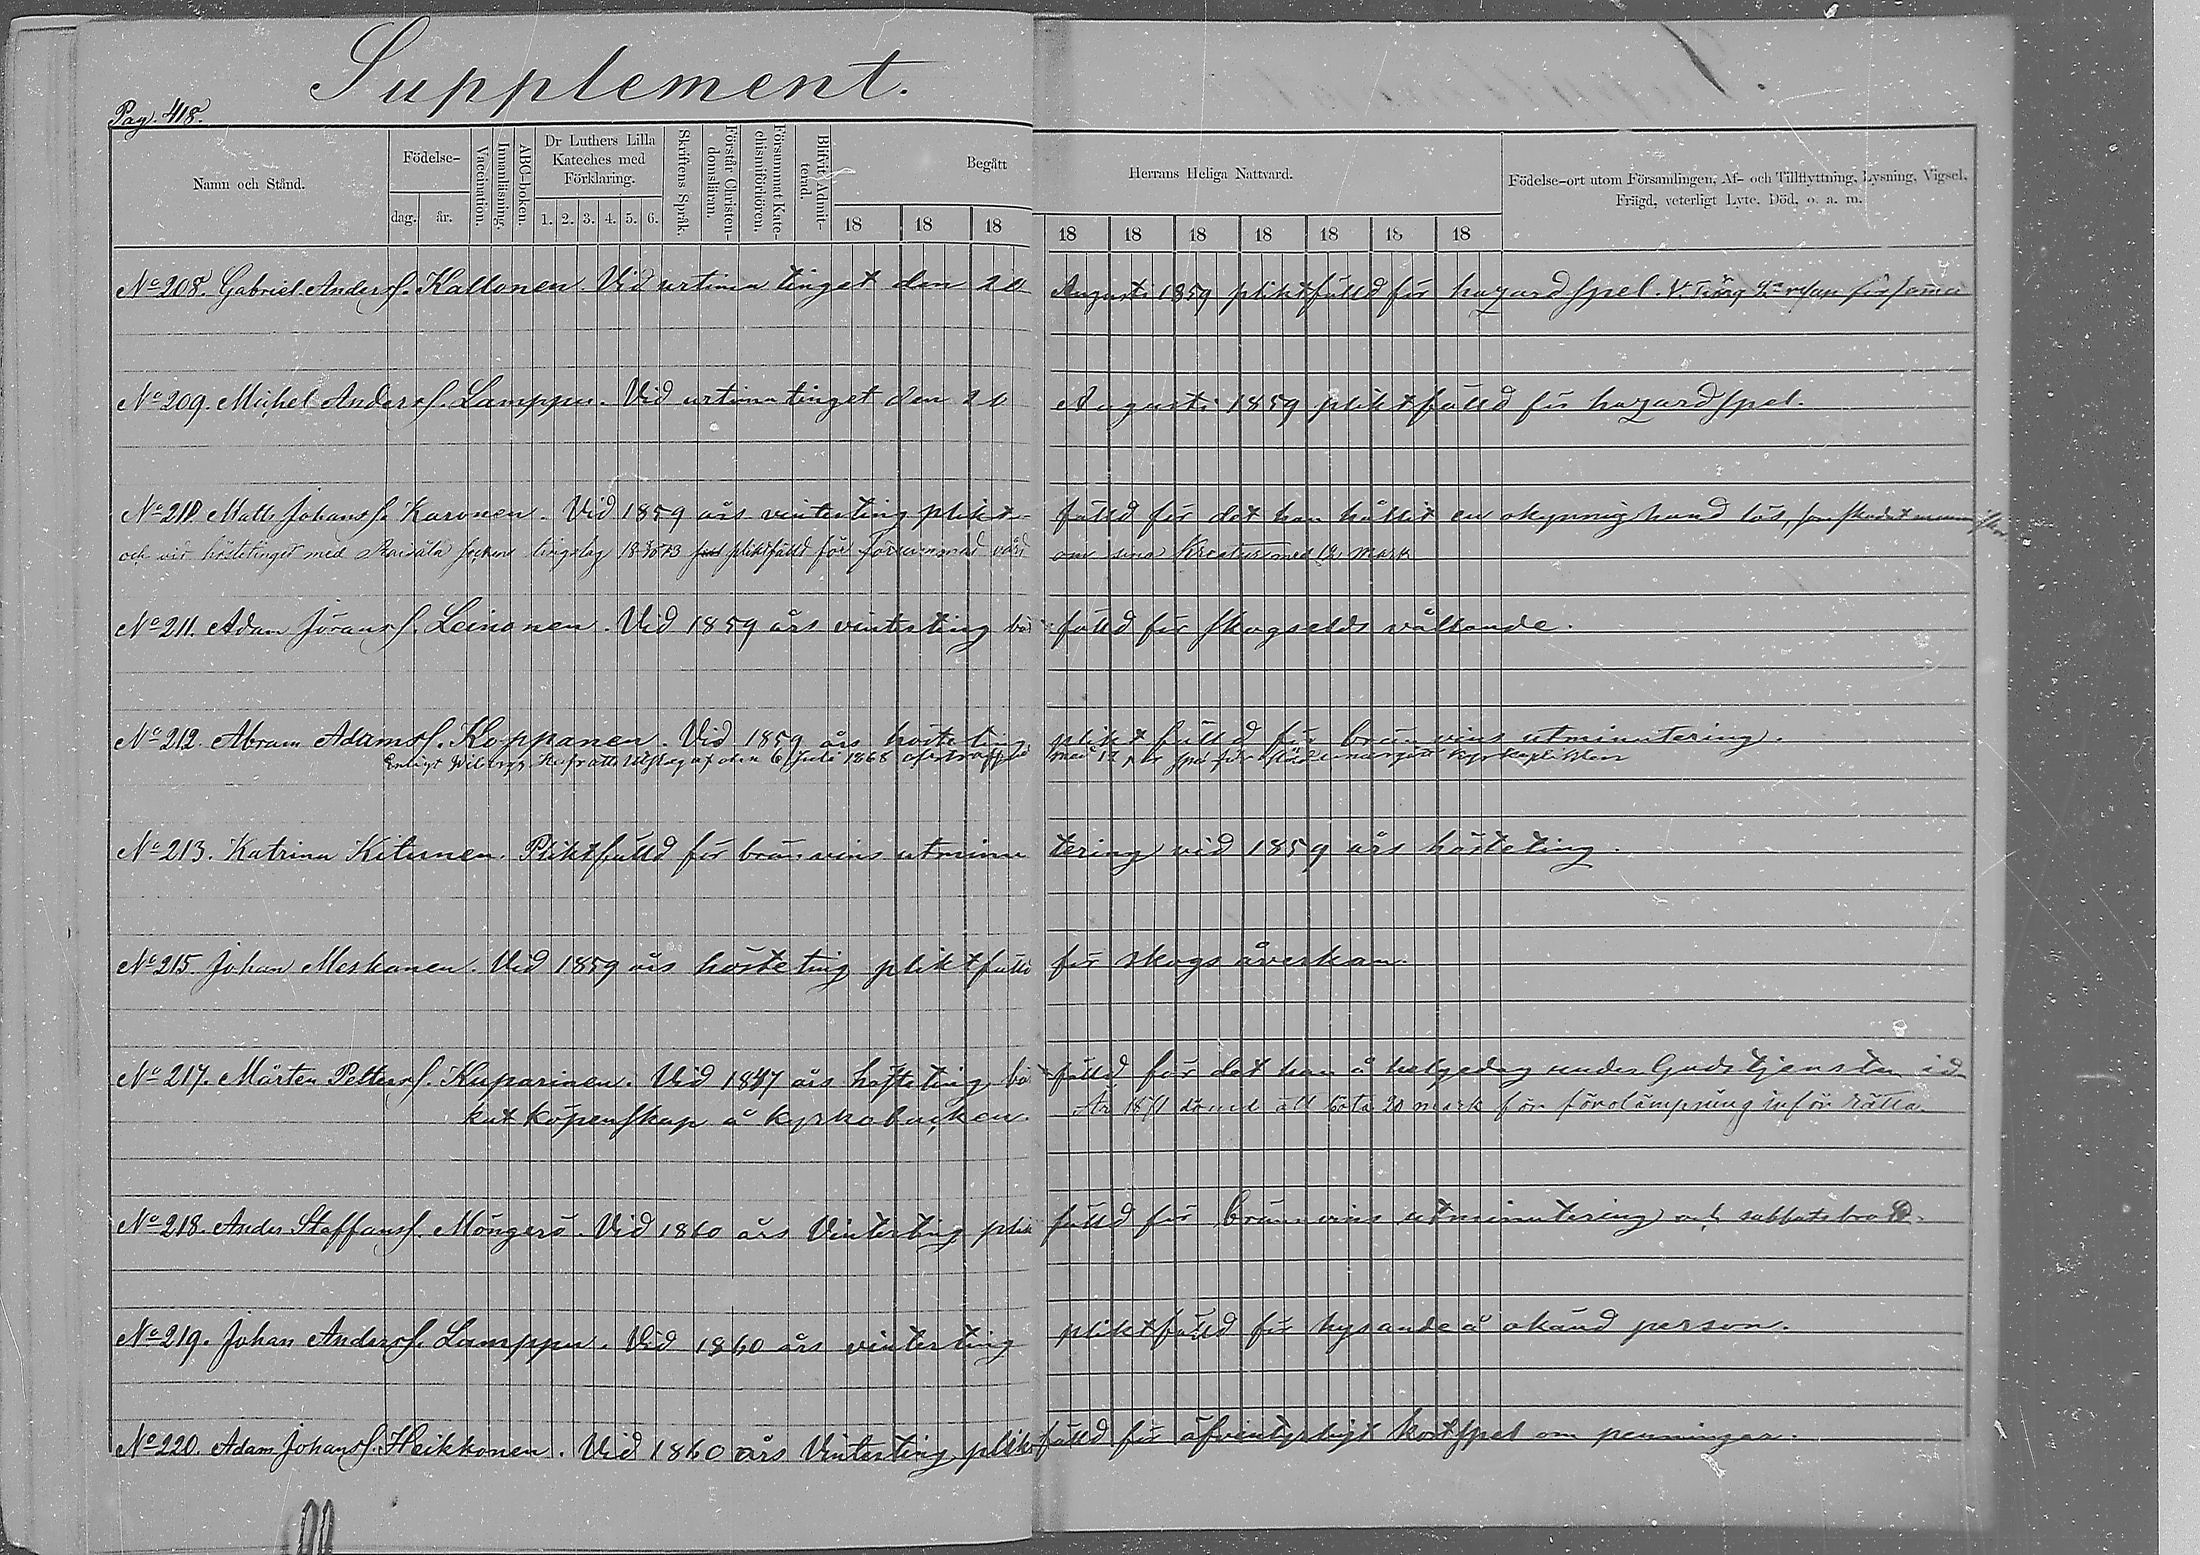 Supplement.
Pag. 418.
Namn och Stånd.
Födelse-
dag.
år.
Vaccination.
Innanläsning.
ABC-boken.
Dr Luthers Lilla
Kateches med
Förklaring.
1. 2. 3. 4. 5. 6.
Skriftens Språk.
Förstår Christen-
domsläran.
Försummat Kate-
chismiförhören.
Blifvit Admit-
terad.
Begått
18 18 18
Herrans Heliga Nattvard.
18 18 18 18 18 18 18
Födelse-ort utom Församlingen, Af- och Tillflyttning, Lysning, Vigsel,
Frägd, veterligt Lyte, Död, o. a. m.
No 208. Gabriel Anderss. Kallonen. Vid urtima tinget den Augusti 1859 pliktfälld för hazardspel.
No 209. Michel Anderss. Lamppu. Vid urtima tinget den Augusti 1859 pliktfälld för hazardspel.
No 210. Matts Johanss. Karonen. Vid 1859 års vinterting plikt- fälld för det han hållit en okynnig hund lös, som skadat
och vid höstetinget med Räisälä socken tingslag pliktfälld för försummad vård om sina Kreatur med 12 mark
No 211. Adam Jöranss. Leinonen. Vid 1859 års vinterting bö- fälld för skogselds vållande.
No 212. Abram Adamss. Koppanen. Vid 1859 års hösteting pliktfälld för brännvins utminutering.
Enligt Wiborgs Hofrätts utslag af den 6 Juli 1868
No 213. Katrina Kitunen. Pliktfälld för brännvins utminu tering vid 1859 års hösteting.
No 215. Johan Meskanen. Vid 1859 års hösteting pliktfälld för skogs åverkan.
No 217. Mårten Petterss. Kuparinen. Vid 1847 års hösteting bö- fälld för det han å helgedag under Gudstjensten id-
kat köpenskap å kyrkobacken. År 1871 dömd att böta 20 mark för förolämpning inför rätta
No 218. Anders Staffanss. Möngerö. Vid 1860 års Vinterting plikt fälld för brännvins utminutering och sabbatsbrott.
No 219. Johan Anderss. Lamppu. Vid 1860 års vinterting pliktfälld för hysande å okänd person.
No 220. Adam Johanss. Heikkonen. Vid 1860 års Vinterting plikt fälld för äfventyrligt kortspel om penningar.